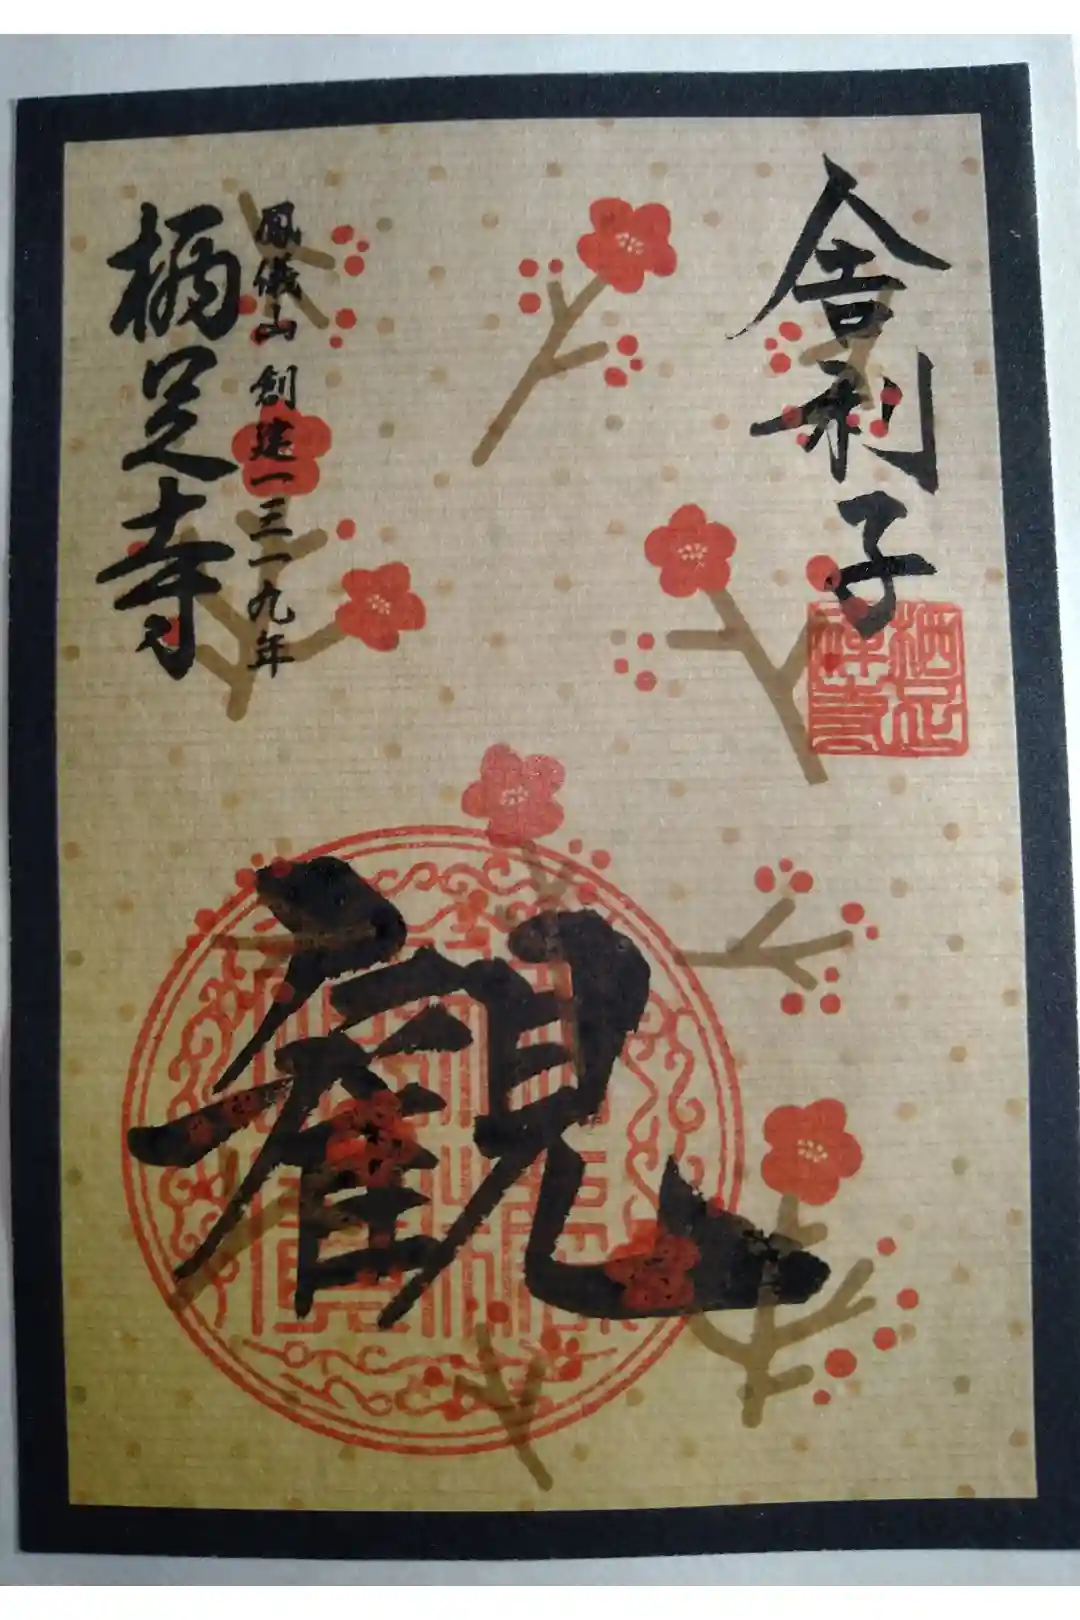 舎利子
栖足禅寺
観
鳳儀山 創建一三一九年
栖足寺